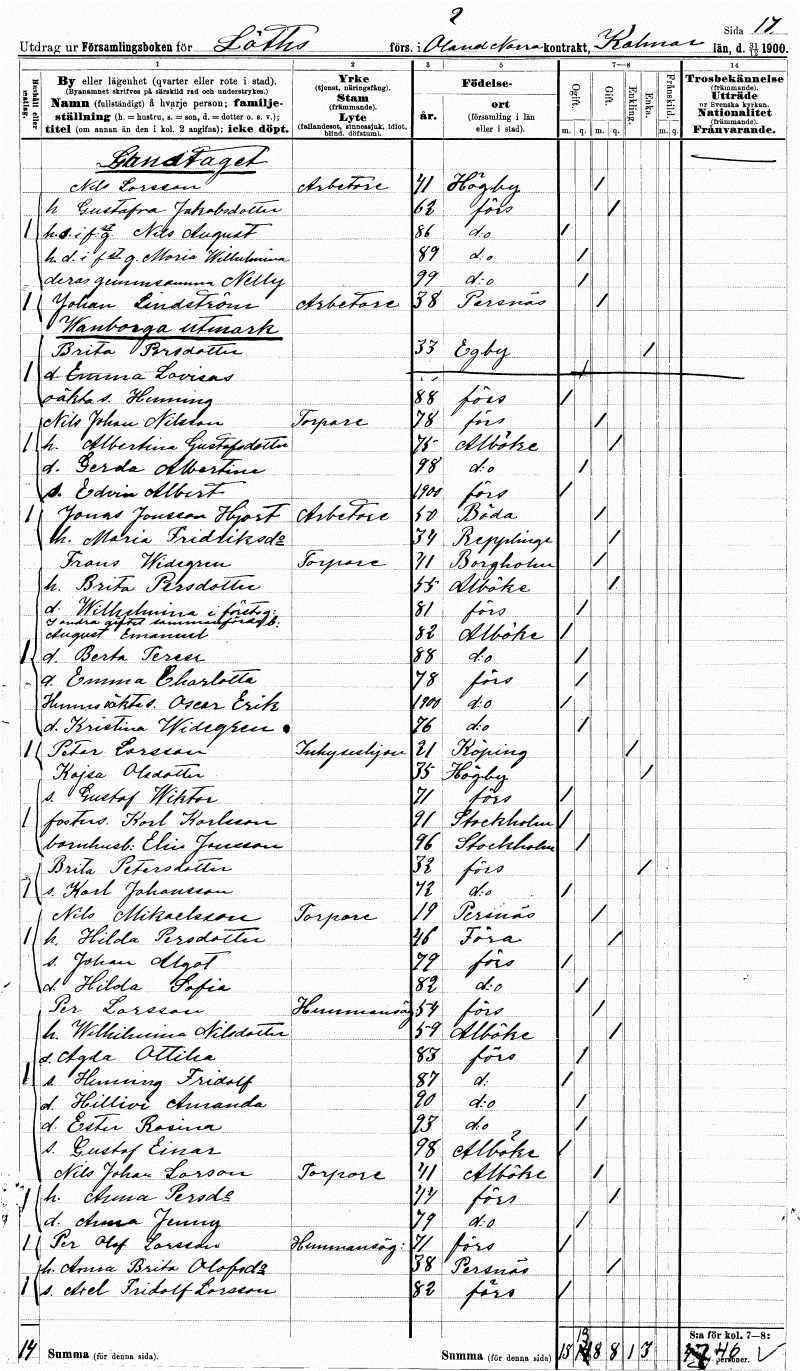 2
Sida 17.
Utdrag ur Församlingsboken för Löths förs. i Öland Norra kontrakt, Kalmar län, d. 31/12 1900.
1 2 3 5 7—8 14
Hushåll eller matlag.
By eller lägenhet (qvarter eller rote i stad).
(Byanamnet skrifves på särskild rad och understrykes.)
Namn (fullständigt) å hvarje person; familje-
ställning (h. = hustru, s. = son, d. = dotter o. s. v.);
titel (om annan än den i kol. 2 angifna); icke döpt.
Yrke
(tjenst, näringsfång).
Stam
(främmande).
Lyte
(fallandesot, sinnessjuk, idiot, blind, döfstum).
Födelse-
år.
ort
(församling i län
eller i stad).
Ogift. Gift. Enkling. Enka. Frånskild.
m. q. m. q. m. q.
Trosbekännelse
(främmande).
Utträde
ur Svenska kyrkan.
Nationalitet
(främmande).
Frånvarande.
Landtaget
Nils Larsson Arbetare 41 Högby /
h Gustafva Jakobsdotter 62 förs /
1 h. s. i f. g Nils August 86 d:o /
h. d. i f st g. Maria Wilhelmina 89 d:o /
deras gemensamma Nelly 99 d:o /
1 Johan Lindström Arbetare 38 Persnäs /
Wanborga utmark
Brita Persdotter 33 Egby /
1 d. Emma Lovisas
oäkta s. Henning 88 förs /
Nils Johan Nilsson Torpare 78 förs /
1 h. Albertina Gustafsdotter 75 Alböke /
d. Gerda Albertina 98 d:o /
s. Edvin Albert 1900 förs /
1 Jonas Jonsson Hjort Arbetare 50 Böda /
h. Maria Fridriksda 34 Repplinge /
Frans Widegren Torpare 41 Borgholm /
h. Brita Persdotter 55 Alböke /
d. Wilhelmina i företeg: 81 förs /
August Emanuel 82 Alböke /
1 d. Berta Teresu 88 d:o /
d. Emma Charlotta 78 förs /
Hennes oäkta s. Oscar Erik 1900 d:o /
d. Kristina Widegren 76 d:o /
1 Peter Larsson Inhyseshjon 21 Köping /
Kajsa Olsdotter 35 Högby /
s. Gustaf Wiktor 71 förs /
1 fosters. Karl Karlsson 91 Stockholm /
barnhusb: Elis Jonsson 96 Stockholm /
Brita Petersdotter 32 förs /
1 s. Karl Johansson 72 d:o /
Nils Mikaelsson Torpare 19 Persnäs /
1 h. Hilda Persdotter 46 Föra /
s. Johan Algot 79 förs /
d. Hilda Sofia 82 d:o /
Per Larsson Hemmansäg 54 förs /
h. Wilhelmina Nilsdotter 59 Alböke /
d. Agda Ottilia 83 förs /
1 s. Henning Fridolf 87 d: /
d. Hillivi Amanda 90 d:o /
d. Ester Rosina 93 d:o /
s. Gustaf Einar 98 Alböke /
Nils Johan Larson Torpare 41 Alböke /
1 h. Anna Persda 44 förs /
d. Anna Jenny 79 d:o /
1 Per Olof Larsson Hemmansäg: 71 förs /
h. Anna Brita Olofsda 38 Persnäs /
1 s. Axel Fridolf Larsson 82 förs /
S:a för kol. 7—8:
14 Summa (för denna sida). Summa (för denna sida) 13 13 8 8 1 3 46 personer.